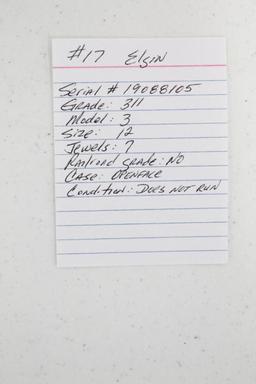 #17 Elgin
Serial # 19088105
Grade: 311
Model: 3
Size: 12
Jewels: 7
Railroad Grade: No
Case: Openface
Condition: Does not run